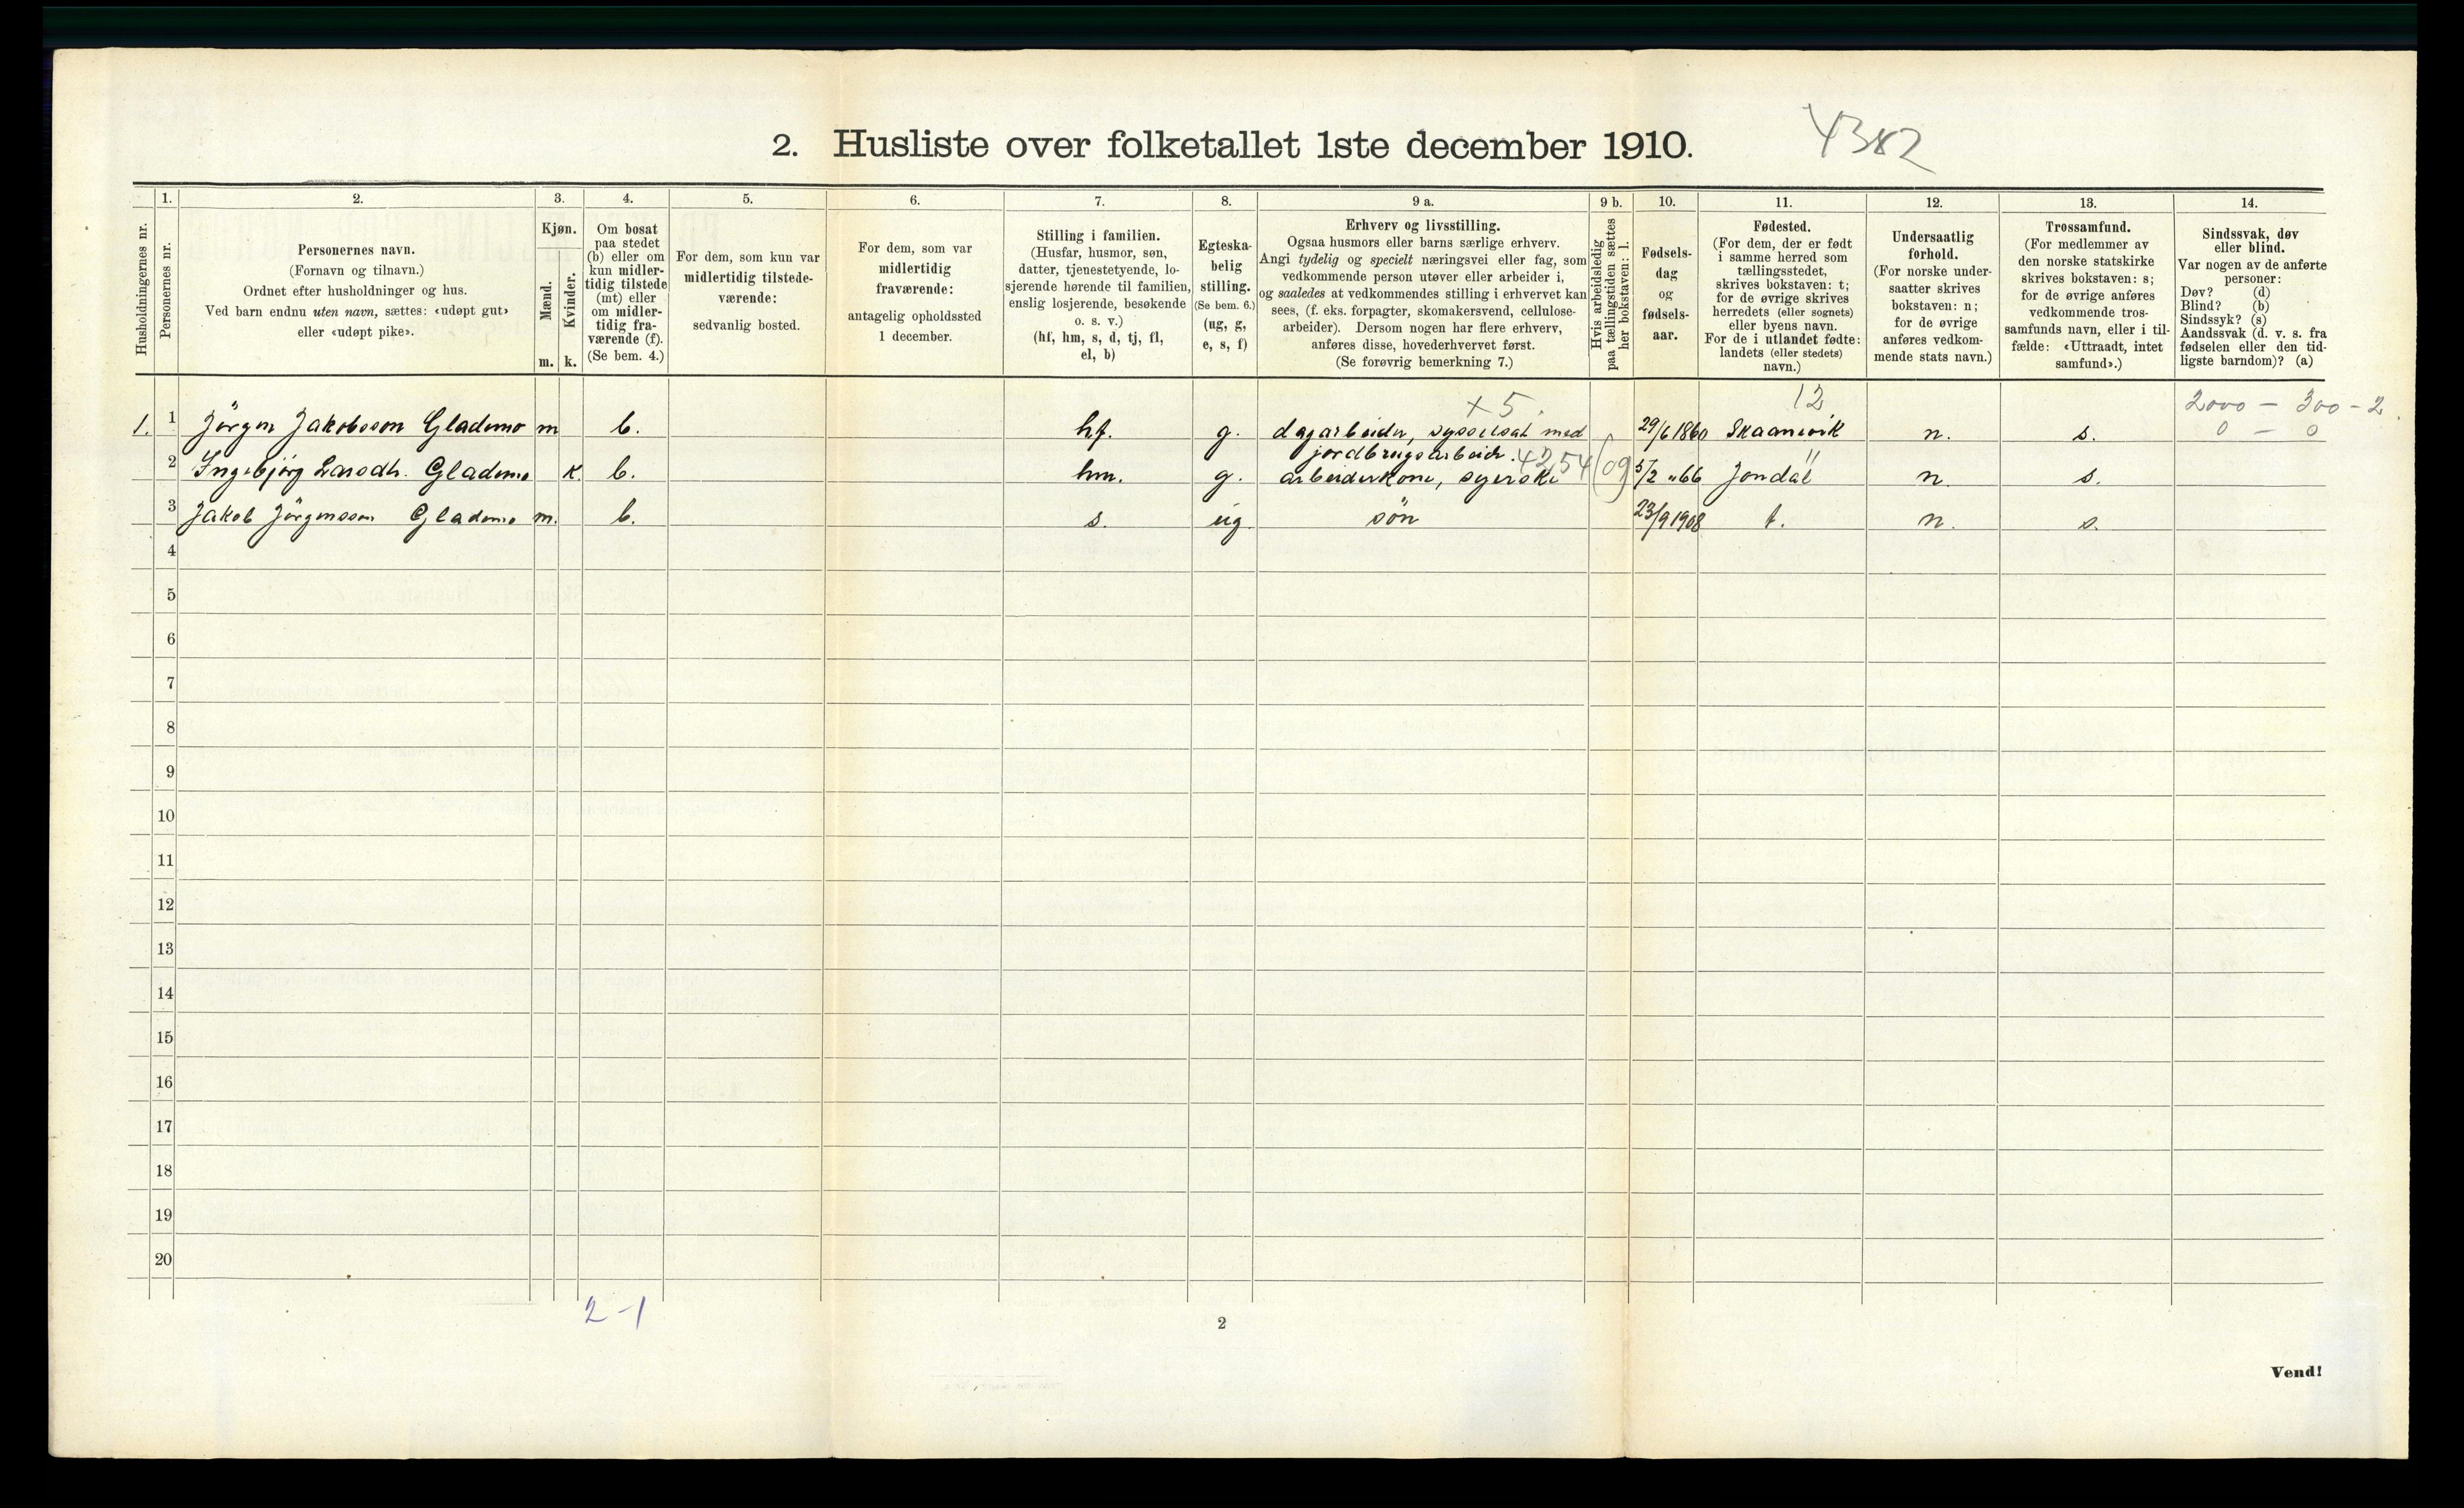 2. Husliste over folketallet 1ste december 1910.
4382
Husholdningernes nr.
1.
Personernes nr.
2.
Personernes navn.
(Fornavn og tilnavn.)
Ordnet efter husholdninger og hus.
Ved barn endnu uten navn, sættes: «udøpt gut»
eller «udøpt pike».
3.
Kjøn.
Mænd.
m.
Kvinder.
k.
4.
Om bosat
paa stedet
(b) eller om
kun midler-
tidig tilstede
(mt) eller
om midler-
tidig fra-
værende (f).
(Se bem. 4.)
5.
For dem, som kun var
midlertidig tilstede-
værende:
sedvanlig bosted.
6.
For dem, som var
midlertidig
fraværende:
antagelig opholdssted
1 december.
7.
Stilling i familien.
(Husfar, husmor, søn,
datter, tjenestetyende, lo-
sjerende hørende til familien,
enslig losjerende, besøkende
o. s. v.)
(hf, hm, s, d, tj, fl,
el, b)
8.
Egteska-
belig
stilling.
(Se bem. 6.)
(ug, g,
e, s, f)
9 a.
Erhverv og livsstilling.
Ogsaa husmors eller barns særlige erhverv.
Angi tydelig og specielt næringsvei eller fag, som
vedkommende person utøver eller arbeider i,
og saaledes at vedkommendes stilling i erhvervet kan
sees, (f. eks. forpagter, skomakersvend, cellulose-
arbeider). Dersom nogen har flere erhverv,
anføres disse, hovederhvervet først.
(Se forøvrig bemerkning 7.)
9 b.
Hvis arbeidsledig
paa tællingstiden sættes
her bokstaven: l.
10.
Fødsels-
dag
og
fødsels-
aar.
11.
Fødested.
(For dem, der er født
i samme herred som
tællingsstedet,
skrives bokstaven: t;
for de øvrige skrives
herredets (eller sognets)
eller byens navn.
For de i utlandet fødte:
landets (eller stedets)
navn.)
12.
Undersaatlig
forhold.
(For norske under-
saatter skrives
bokstaven: n;
for de øvrige
anføres vedkom-
mende stats navn.)
13.
Trossamfund.
(For medlemmer av
den norske statskirke
skrives bokstaven: s;
for de øvrige anføres
vedkommende tros-
samfunds navn, eller i til-
fælde: «Uttraadt, intet
samfund».)
14.
Sindssvak, døv
eller blind.
Var nogen av de anførte
personer:
Døv? (d)
Blind? (b)
Sindssyk? (s)
Aandssvak (d. v. s. fra
fødselen eller den tid-
ligste barndom)? (a)
x 5. 12 2000 - 300 - 2
1. 1 Jörgen Jakobsson Glademo m b. hf. g. dagarbeider, sysselsat med 29/6 1860 Skaanevik n. s. 0 - 0
jordbrugsarbeide. 4254 (09) 11
2 Ingebjörg Larsdtr. Glademo k. b. hm. g. arbeiderkone, syerske 5/2 "66 Jondal n. s.
3 Jakob Jörgensson Glademo m. b. s. ug. sön 23/9 1908 t. n. s.
4
5
6
7
8
9
10
11
12
13
14
15
16
17
18
19
20
2 - 1
2
Vend!